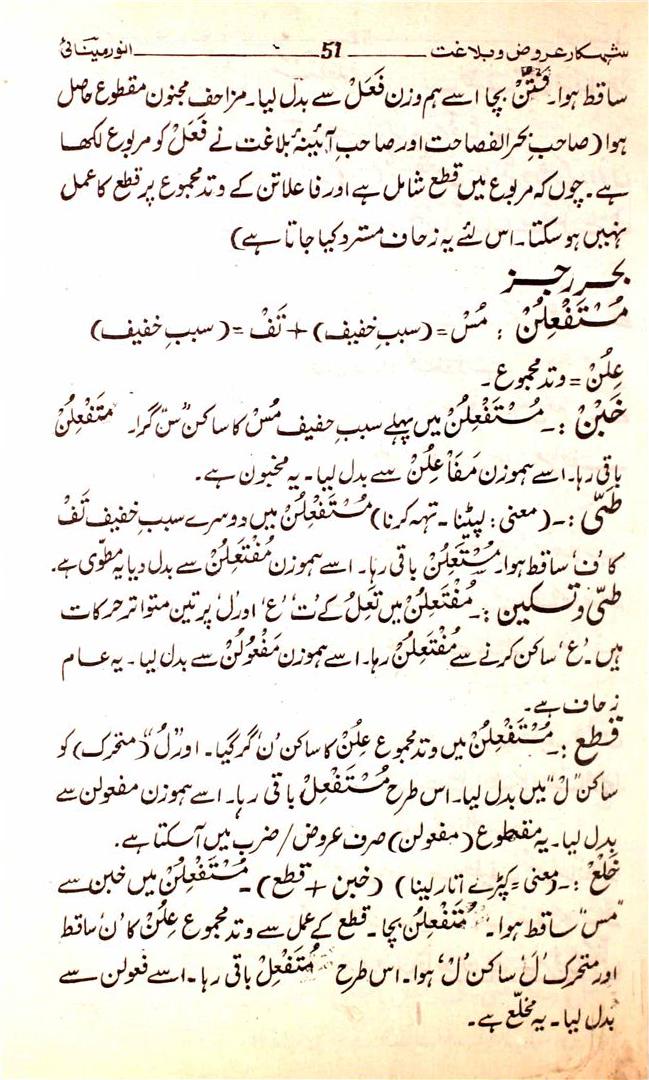 شہکار عروض و بلاغت 51 انور مینائی
ساقط ہوا۔ فَتَنْ بچا اسے ہم وزن فَعَلْ سے بدل لیا۔ مزاحف مجنون مقطوع حاصل
ہوا (صاحبِ بحرالفصاحت اور صاحبِ آئینۂ بلاغت نے فَعَلْ کو مربوع لکھا
ہے۔ چوں کہ مربوع میں قطع شامل ہے اور فاعلاتن کے وتد مجموع پر قطع کا عمل
نہیں ہو سکتا۔ اس لئے یہ زحاف مسترد کیا جاتا ہے)
بحر رجز
مُسْتَفْعِلُنْ : مُسْ = (سببِ خفیف) + تَفْ = (سببِ خفیف)
عِلُنْ = وتد مجموع۔
خَبْنْ :۔ مُسْتَفْعِلُنْ میں پہلے سببِ خفیف مُسْ کا ساکن "سْ" گرا۔ مُتَفْعِلُنْ
باقی رہا۔ اسے ہموزن مَفَاعِلُنْ سے بدل لیا۔ یہ مخبون ہے۔
طَیّ :۔ (معنی: لپیٹنا۔ تہہ کرنا) مُسْتَفْعِلُنْ میں دوسرے سببِ خفیف تَفْ
کا 'ف' ساقط ہوا۔ مُسْتَعِلُنْ باقی رہا۔ اسے ہموزن مُفْتَعِلُنْ سے بدل دیا یہ مطوّی ہے۔
طیّ و تسکین :۔ مُفْتَعِلُنْ میں تَعِلُ کے 'ت' 'ع' اور 'ل' پر تین متواتر حرکات
ہیں۔ 'ع' ساکن کرنے سے مُفْتَعْلُنْ رہا۔ اسے ہموزن مَفْعُولُنْ سے بدل لیا۔ یہ عام
زحاف ہے۔
قطع :۔ مُسْتَفْعِلُنْ میں وتد مجموع عِلُنْ کا ساکن 'ن' گر گیا۔ اور "لُ" (متحرک) کو
ساکن "لْ" میں بدل لیا۔ اس طرح مُسْتَفْعِلْ باقی رہا۔ اسے ہموزن مفعولن سے
بدل لیا۔ یہ مقطوع (مفعولن) صرف عروض/ضرب میں آسکتا ہے۔
خَلَعْ :۔ (معنی = کپڑے اتار لینا) (خبن + قطع)۔ مُسْتَفْعِلُنْ میں خبن سے
"مس" ساقط ہوا۔ مُتَفْعِلُن بچا۔ قطع کے عمل سے وتد مجموع عِلُنْ کا 'ن' ساقط
اور متحرک 'لُ' ساکن 'لْ' ہوا۔ اس طرح مُتَفْعِلْ باقی رہا۔ اسے فعولن سے
بدل لیا۔ یہ مخلّع ہے۔